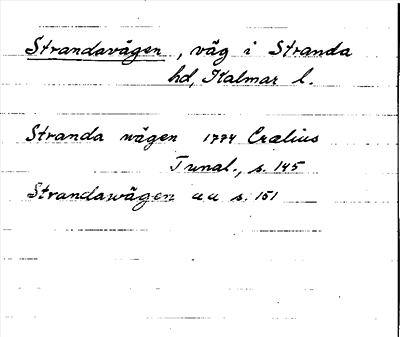 Strandavägen, väg i Stranda
hd, Kalmar l.
Stranda wägen 1774 Crælius
Tunal., s. 145
Strandawägen a a s. 151